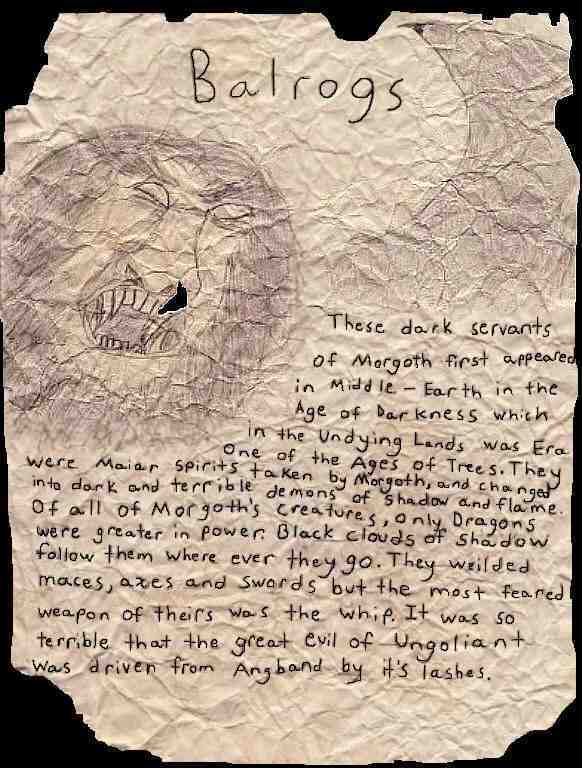 Balrogs
These dark servants
of Morgoth first appeared
in Middle - Earth in the
Age of Darkness which
in the Undying Lands was Era
One of the Ages of Trees. They
were Maiar spirits taken by Morgoth, and changed
into dark and terrible demons of shadow and flame.
Of all of Morgoth's creatures, only Dragons
were greater in power. Black clouds of shadow
follow them where ever they go. They weilded
maces, axes and swords but the most feared
weapon of theirs was the whip. It was so
terrible that the great evil of Ungoliant
was driven from Angband by it's lashes.